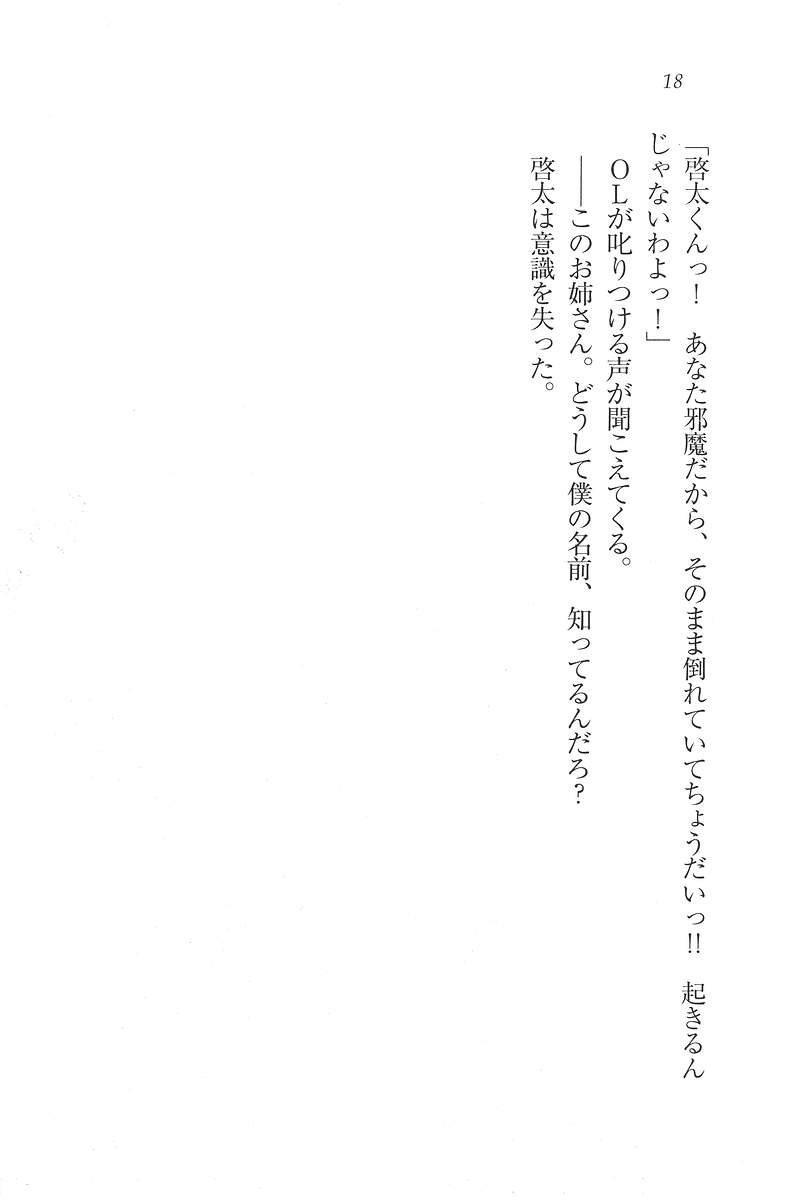 18
「啓太くんっ！　あなた邪魔だから、そのまま倒れていてちょうだいっ!!　起きるん
じゃないわよっ！」
　ＯＬが叱りつける声が聞こえてくる。
　――このお姉さん。どうして僕の名前、知ってるんだろ？
　啓太は意識を失った。